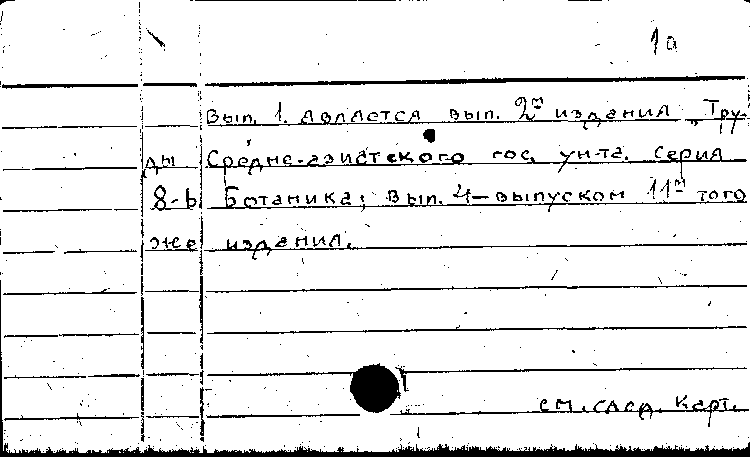 1а
Вып. 1. является вып. 2м издания „Тру-
ды Средне-азиатского гос. ун-та. Серия
8-b Ботаника; Вып. 4 — выпуском 11м того
же издания.
см. след. карт.